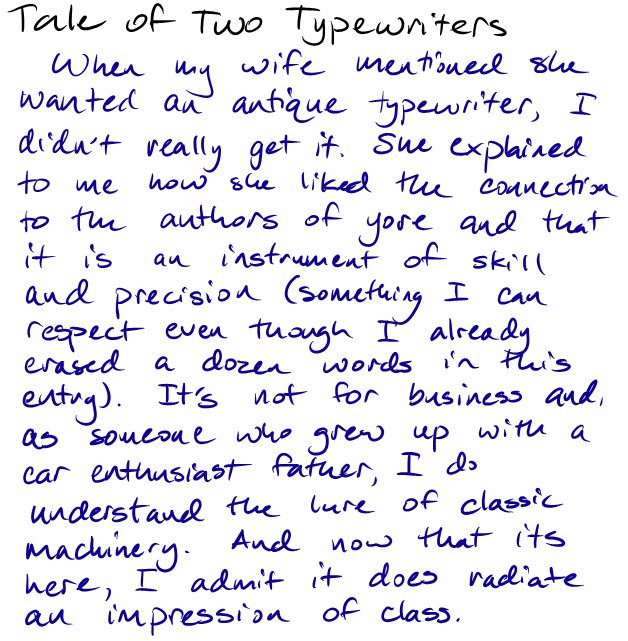 Tale of Two Typewriters
When my wife mentioned she
wanted an antique typewriter, I
didn't really get it. She explained
to me how she liked the connection
to the authors of yore and that
it is an instrument of skill
and precision (something I can
respect even though I already
erased a dozen words in this
entry). It's not for business and,
as someone who grew up with a
car enthusiast father, I do
understand the lure of classic
machinery. And now that its
here, I admit it does radiate
an impression of class.